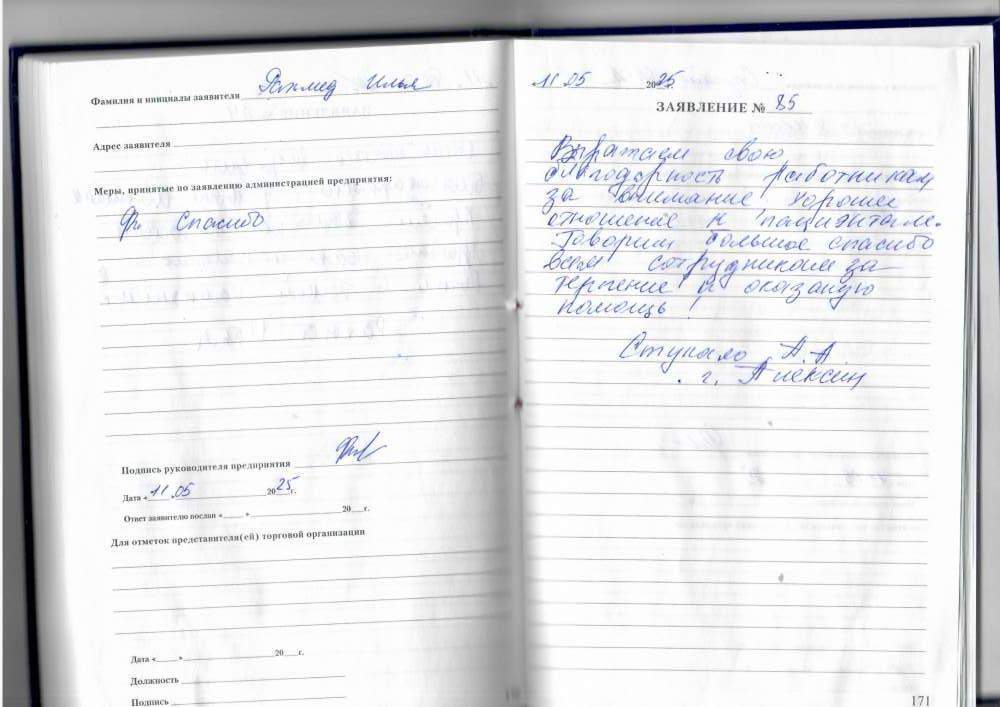 Фамилия и инициалы заявителя Рахмед Илья
Адрес заявителя
Меры, принятые по заявлению администрацией предприятия:
Спасибо
Подпись руководителя предприятия
Дата « 11 .05 20 25 г.
Ответ заявителю послан « » 20 г.
Для отметок представителя(ей) торговой организации
Дата « » 20 г.
Должность
Подпись
11 05 20 25 г.
ЗАЯВЛЕНИЕ № 85
Выражаем свою
благодарность работникам
за внимание хорошее
отношение к пациэнтам.
Говорим большое спасибо
всем сотрудникам за
терпение и оказаную
помощь!
Ступало А.А.
г. Алексин
171